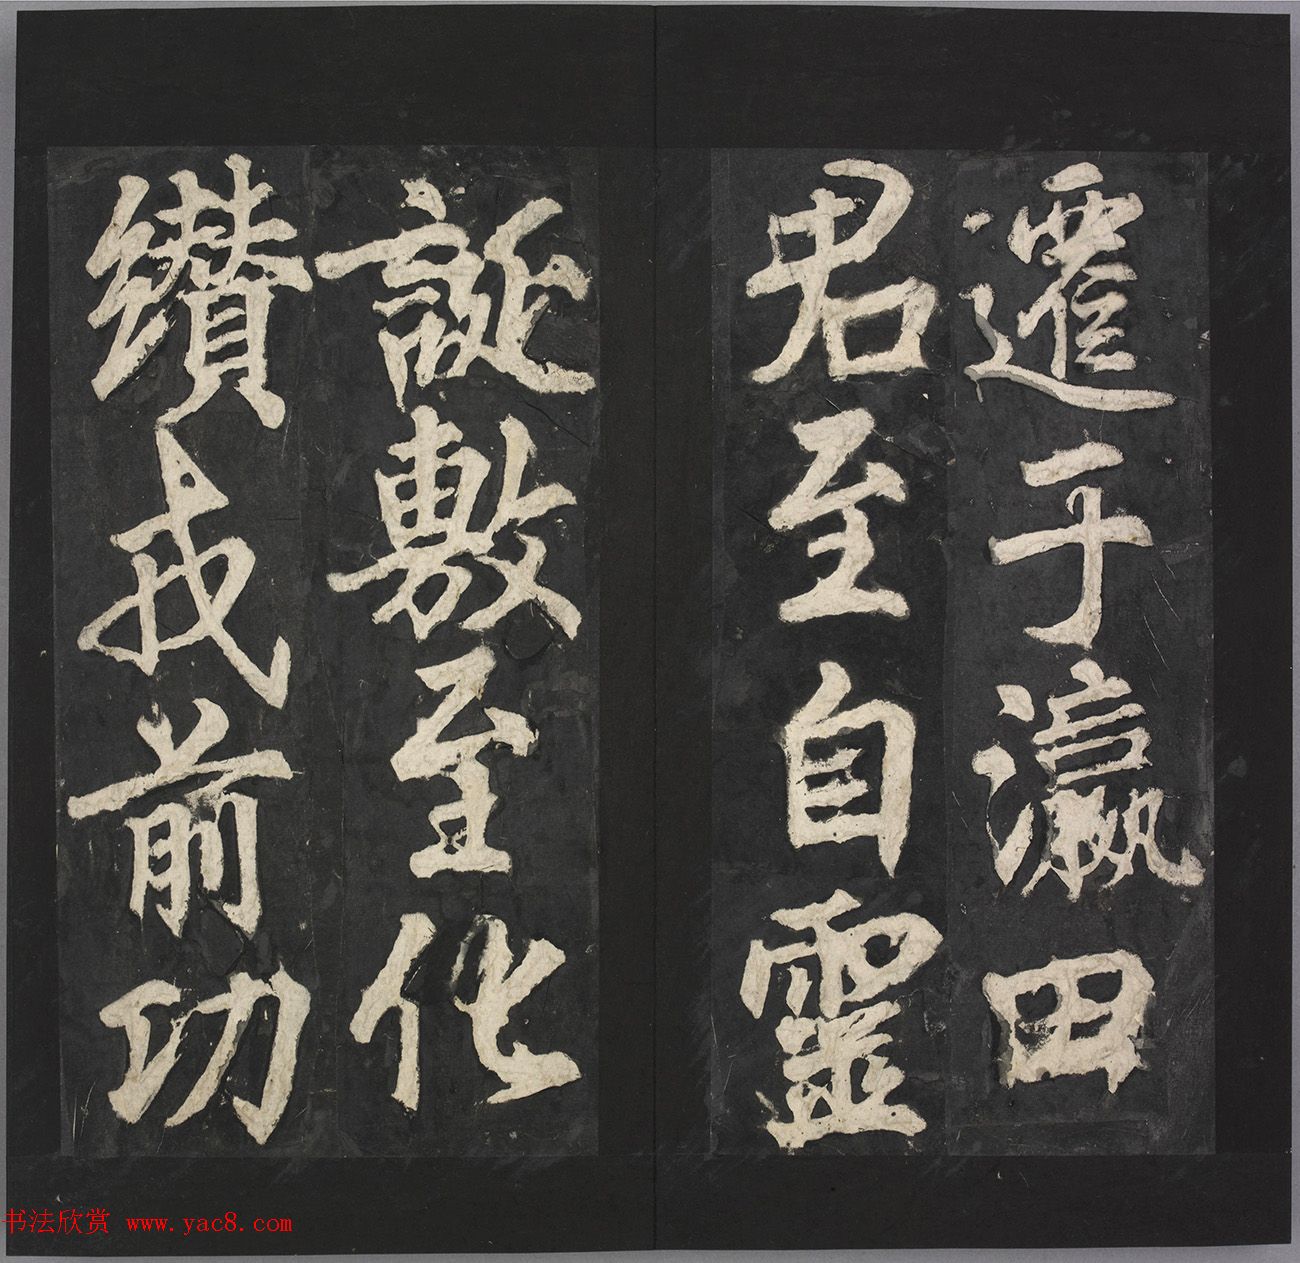 遷于瀛田
君至自靈
誕敷至化
纘戎前功
书法欣赏 www.yac8.com